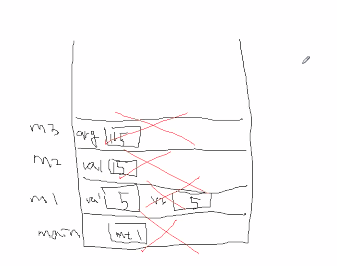 m3 arg 15
m2 val 15
m1 val 5 5
main mt1